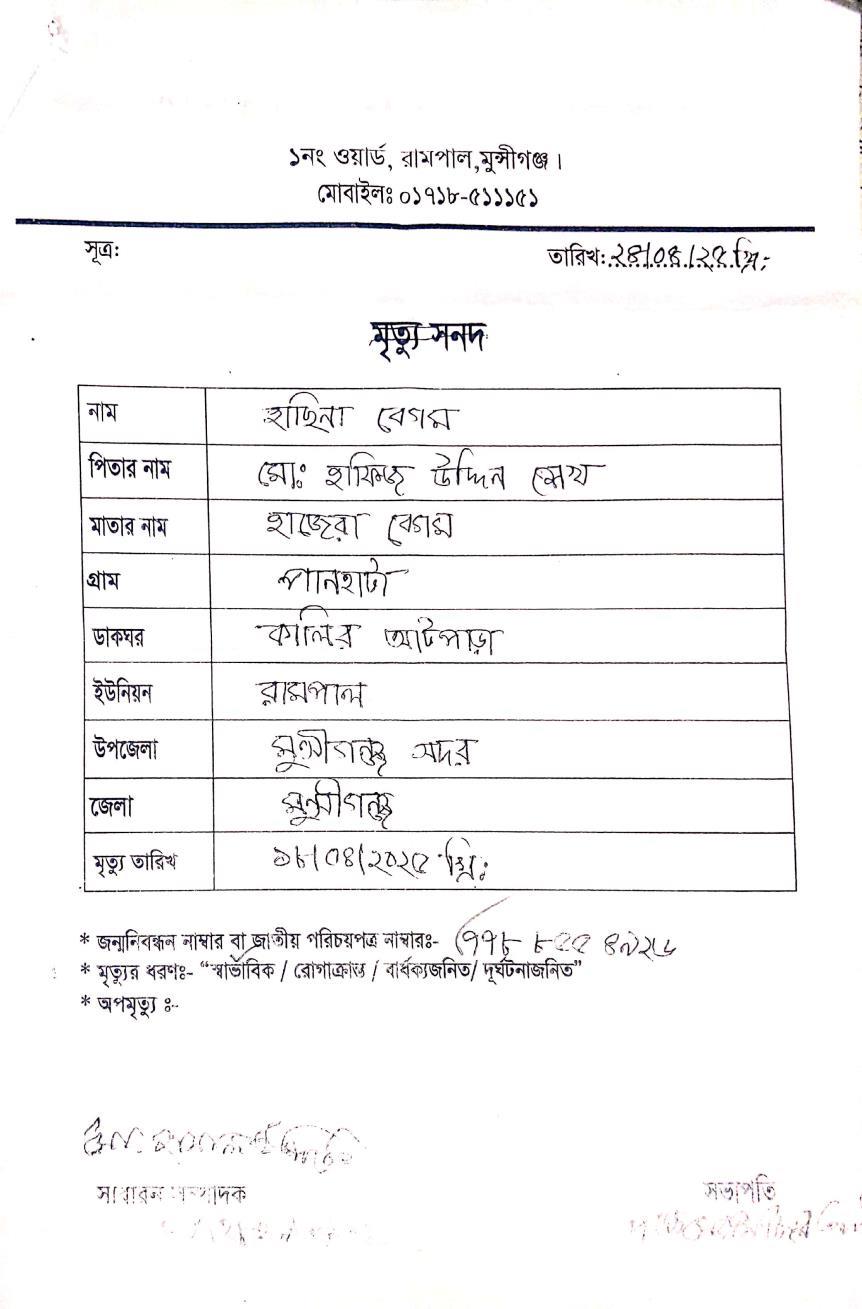 ১নং ওয়ার্ড, রামপাল,মুন্সীগঞ্জ।
মোবাইলঃ ০১৭১৮-৫১১১৫১
সূত্র:
তারিখ: ২৪/০৪/২৫ খ্রি:
মৃত্যু সনদ
নাম হাছিনা বেগম
পিতার নাম মো: হাফিজ উদ্দিন শেখ
মাতার নাম হাজেরা বেগম
গ্রাম পানহাটা
ডাকঘর কালির আটপাড়া
ইউনিয়ন রামপাল
উপজেলা মুন্সীগঞ্জ সদর
জেলা মুন্সীগঞ্জ
মৃত্যু তারিখ ১৮/০৪/২০২৫ খ্রি:
* জন্মনিবন্ধন নাম্বার বা জাতীয় পরিচয়পত্র নাম্বারঃ-
* মৃত্যুর ধরণঃ- “স্বাভাবিক / রোগাক্রান্ত / বার্ধক্যজনিত/ দূর্ঘটনাজনিত”
* অপমৃত্যু ঃ-
সাধারন সম্পাদক
সভাপতি